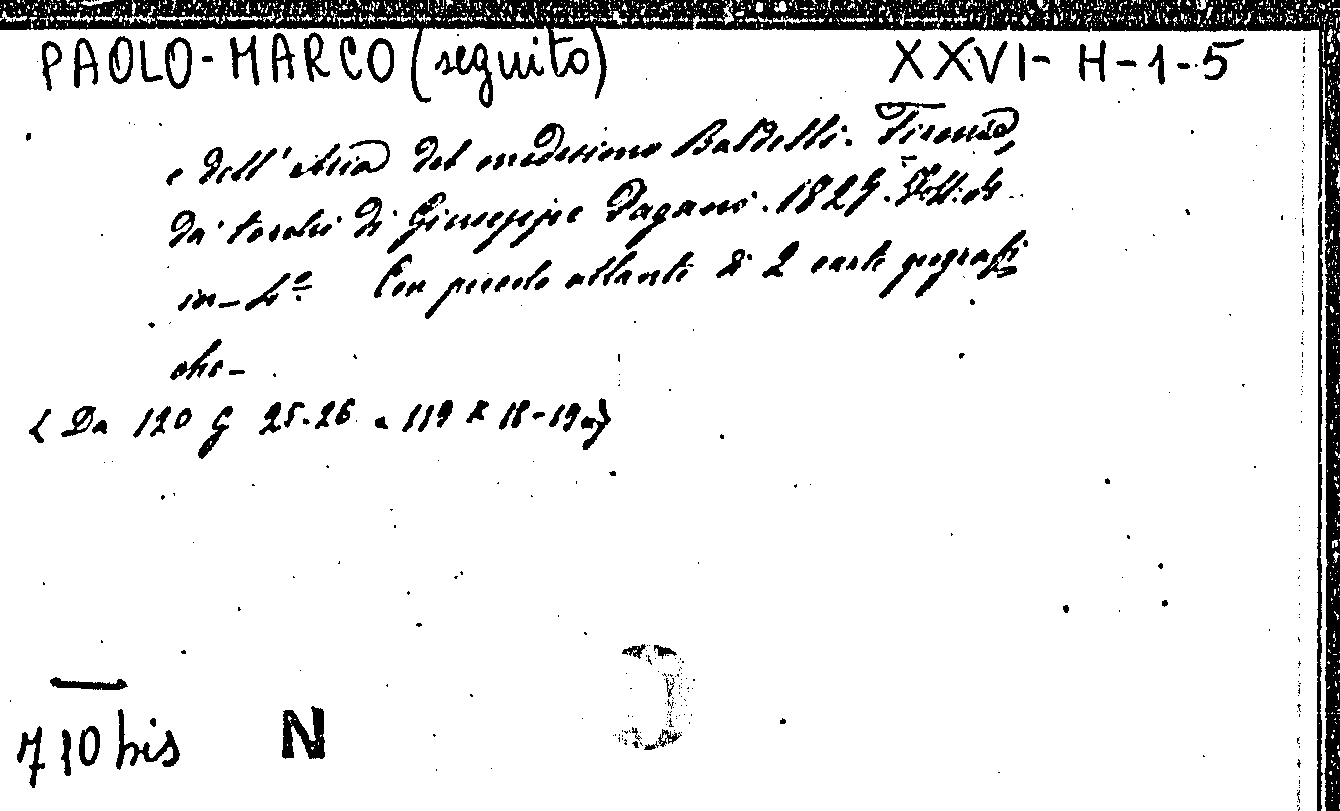 PAOLO-MARCO (seguito) XXVI-H-1-5
e dell'Asia del medesimo Baldelli. Firenze,
da' torchi di Giuseppe Pagani. 1827.
in-4º Con piccolo atlante di 2 carte geografi
che-
(Da 120 G 25.26 e 119 K 18-19
710 bis N